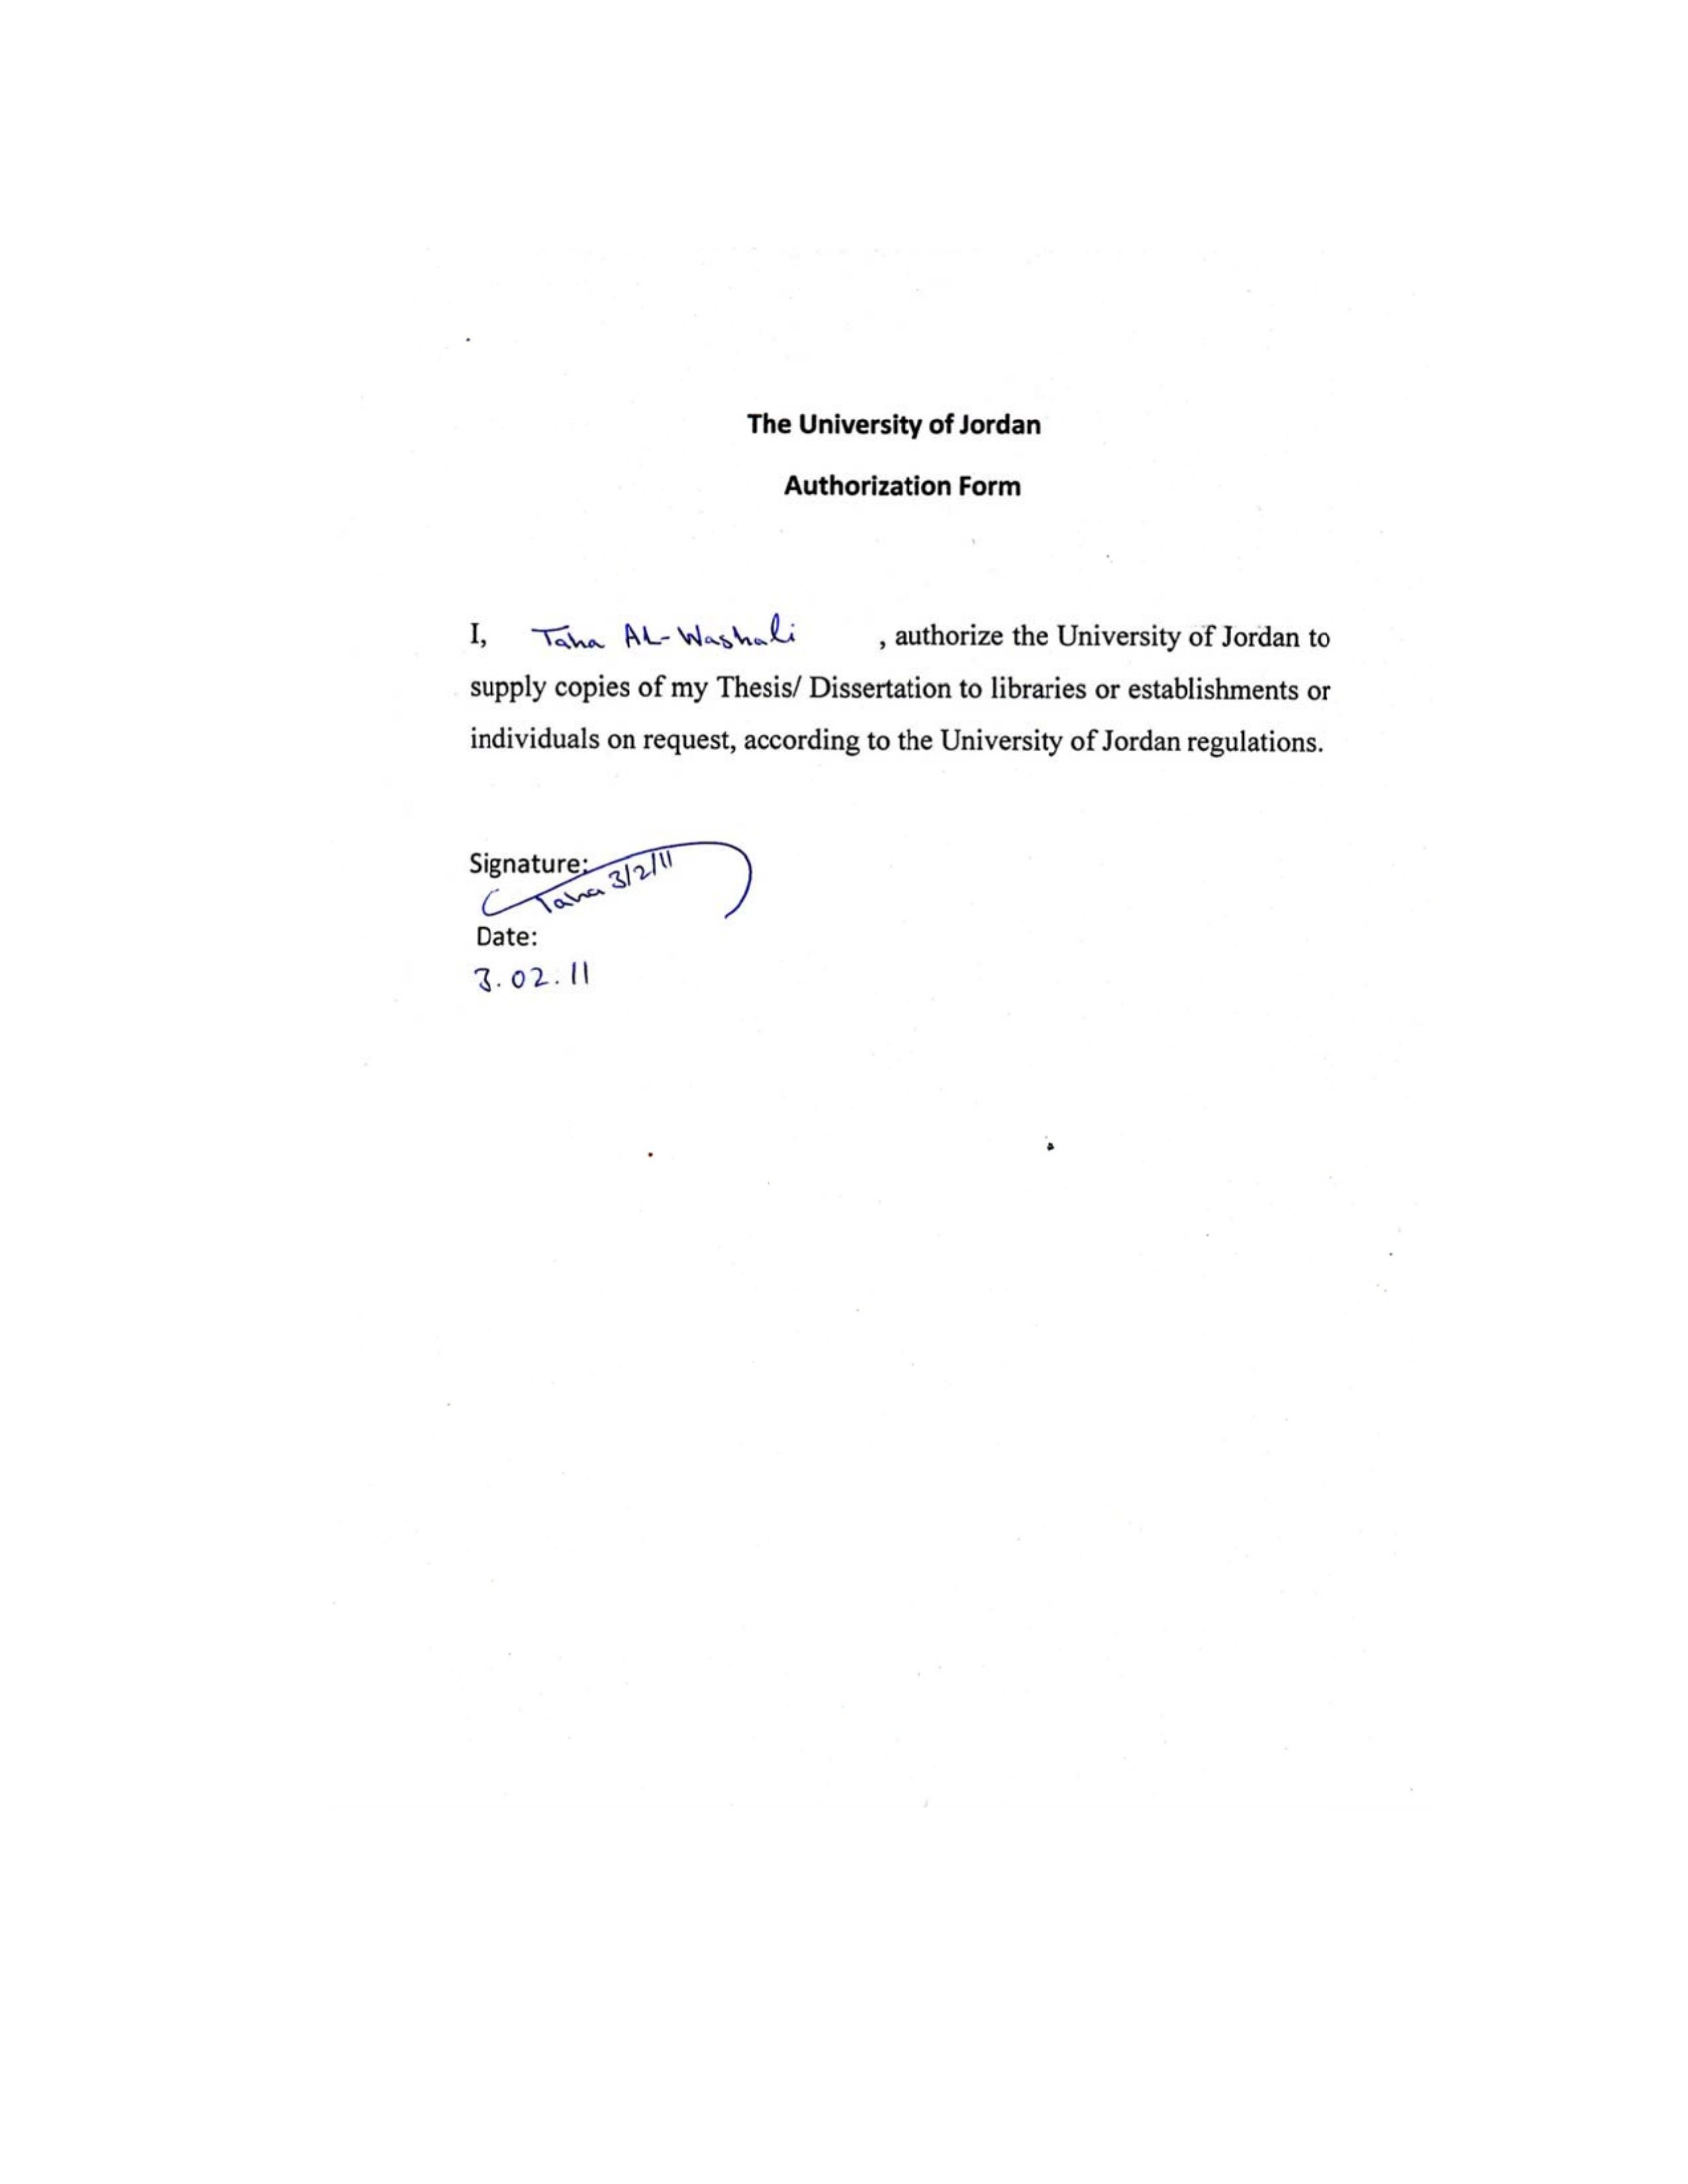 The University of Jordan
Authorization Form
I, Taha AL-Washali , authorize the University of Jordan to
supply copies of my Thesis/ Dissertation to libraries or establishments or
individuals on request, according to the University of Jordan regulations.
Signature:
Taha 3/2/11
Date:
3.02.11